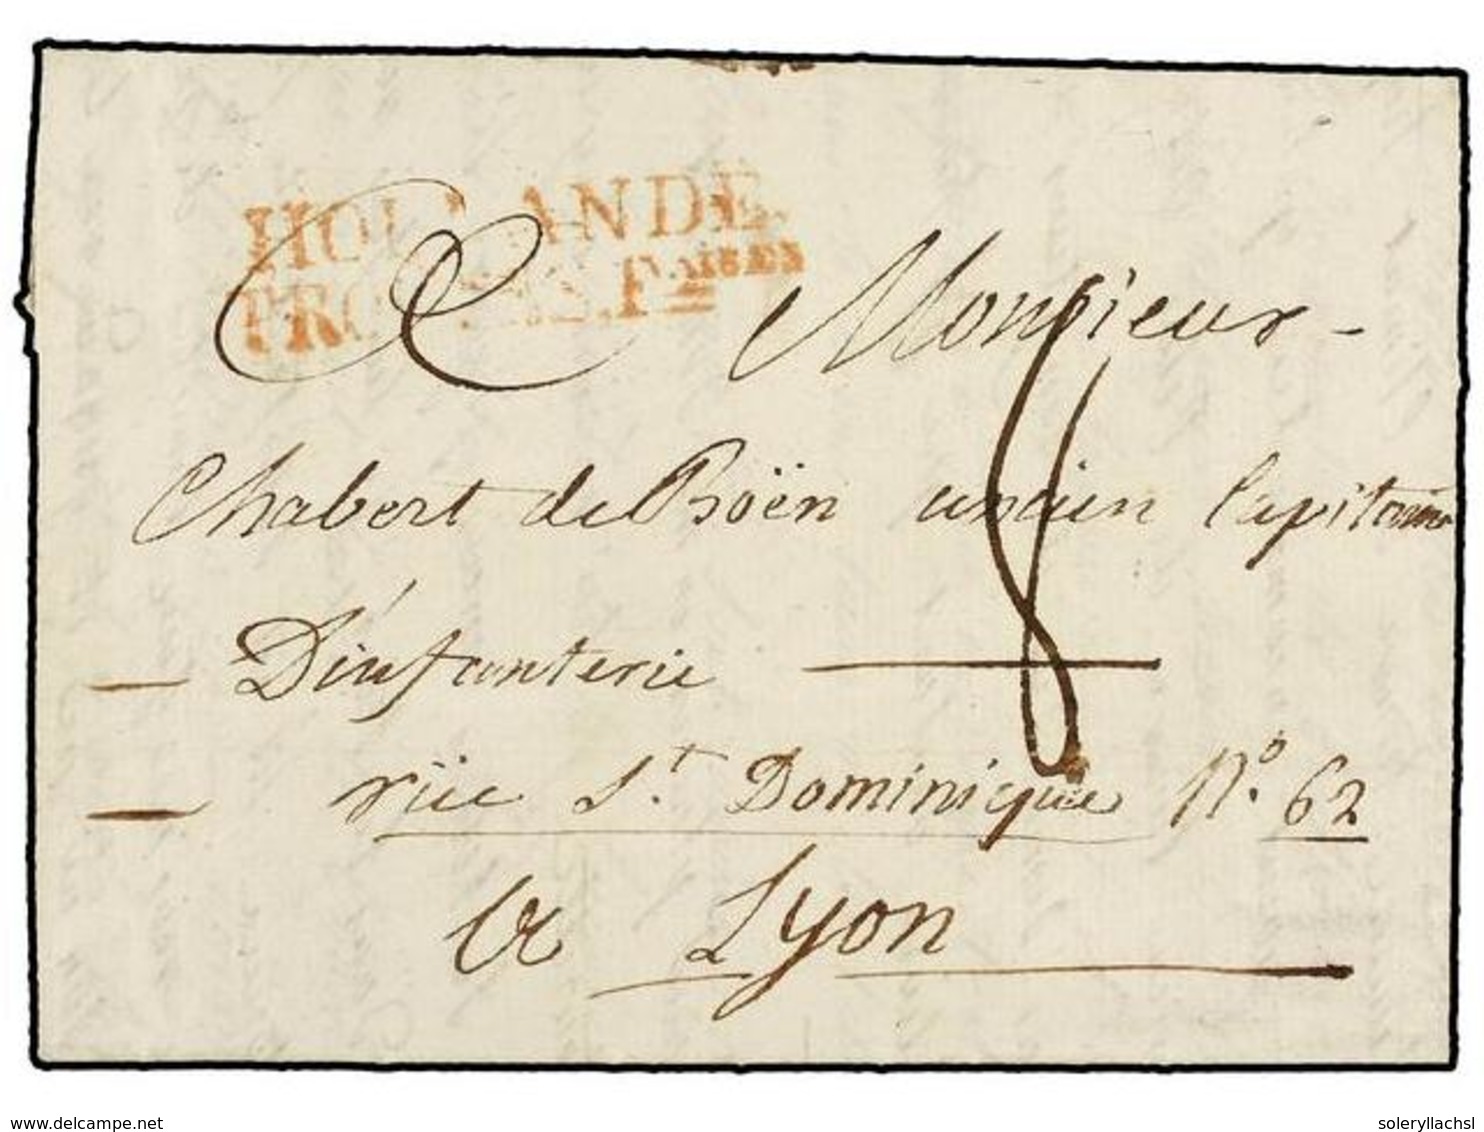 HOLLANDE
A Monsieur
Chabert de Boën ancien Capitaine
D'infanterie
8
rüe St. Dominique No. 62
a Lyon
delcampe.net
soleryllachsl